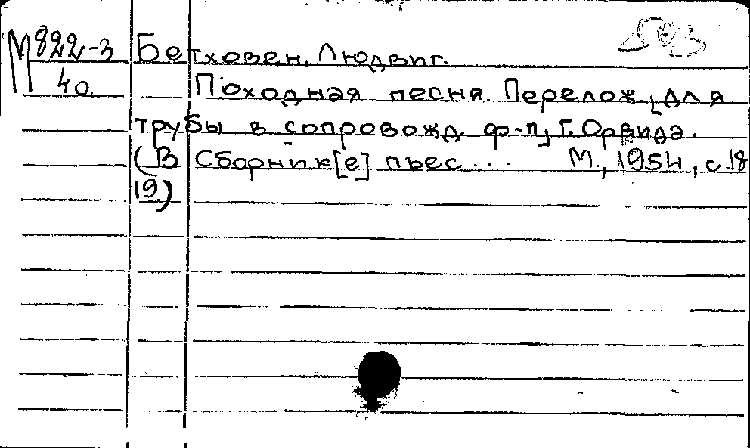 М 822-3 Бетховен, Людвиг.
40 Походная песня. Перелож. для
трубы в сопровожд. ф-п. Г. Орвида.
(В Сборник[е] пьес... М., 1954, с. 18
19)